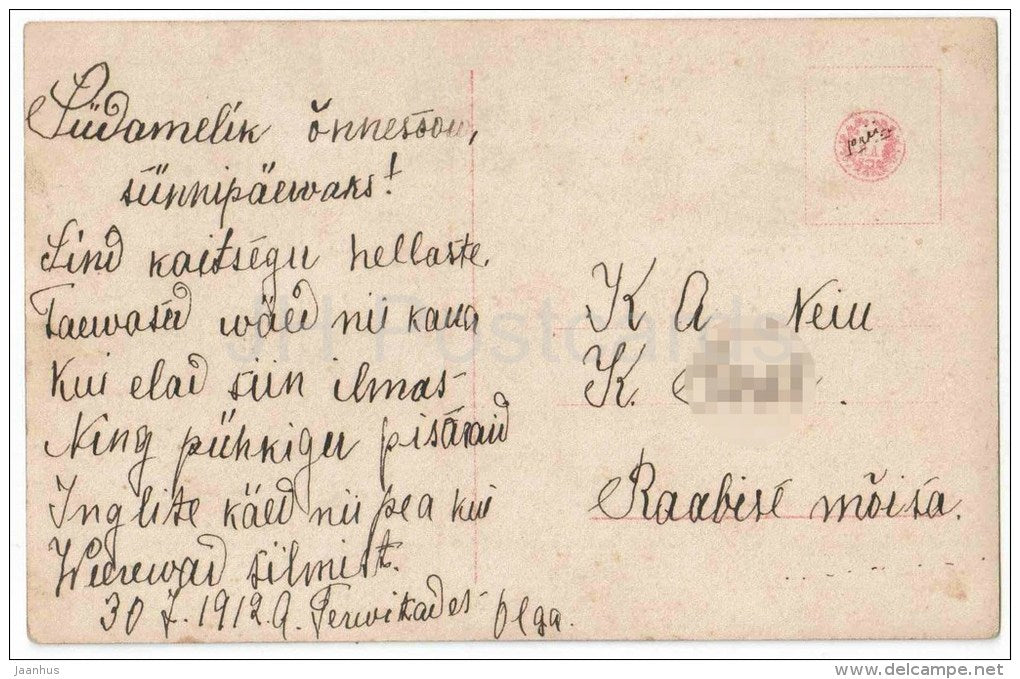 Südamelik õnnesoow,
sünnipäewaks!
Sind kaitsegu hellaste.
Taewased wäed nii kaua
Kui elad siin ilmas
Ning pühkigu pisaraid
Inglite käed nii pea kui
Weerewad silmist.
30 I. 1912. a. Terwitades Olga.
K A Neiu
K.
Raabise mõisa.
JH Postcards
jaanhus
www.delcampe.net